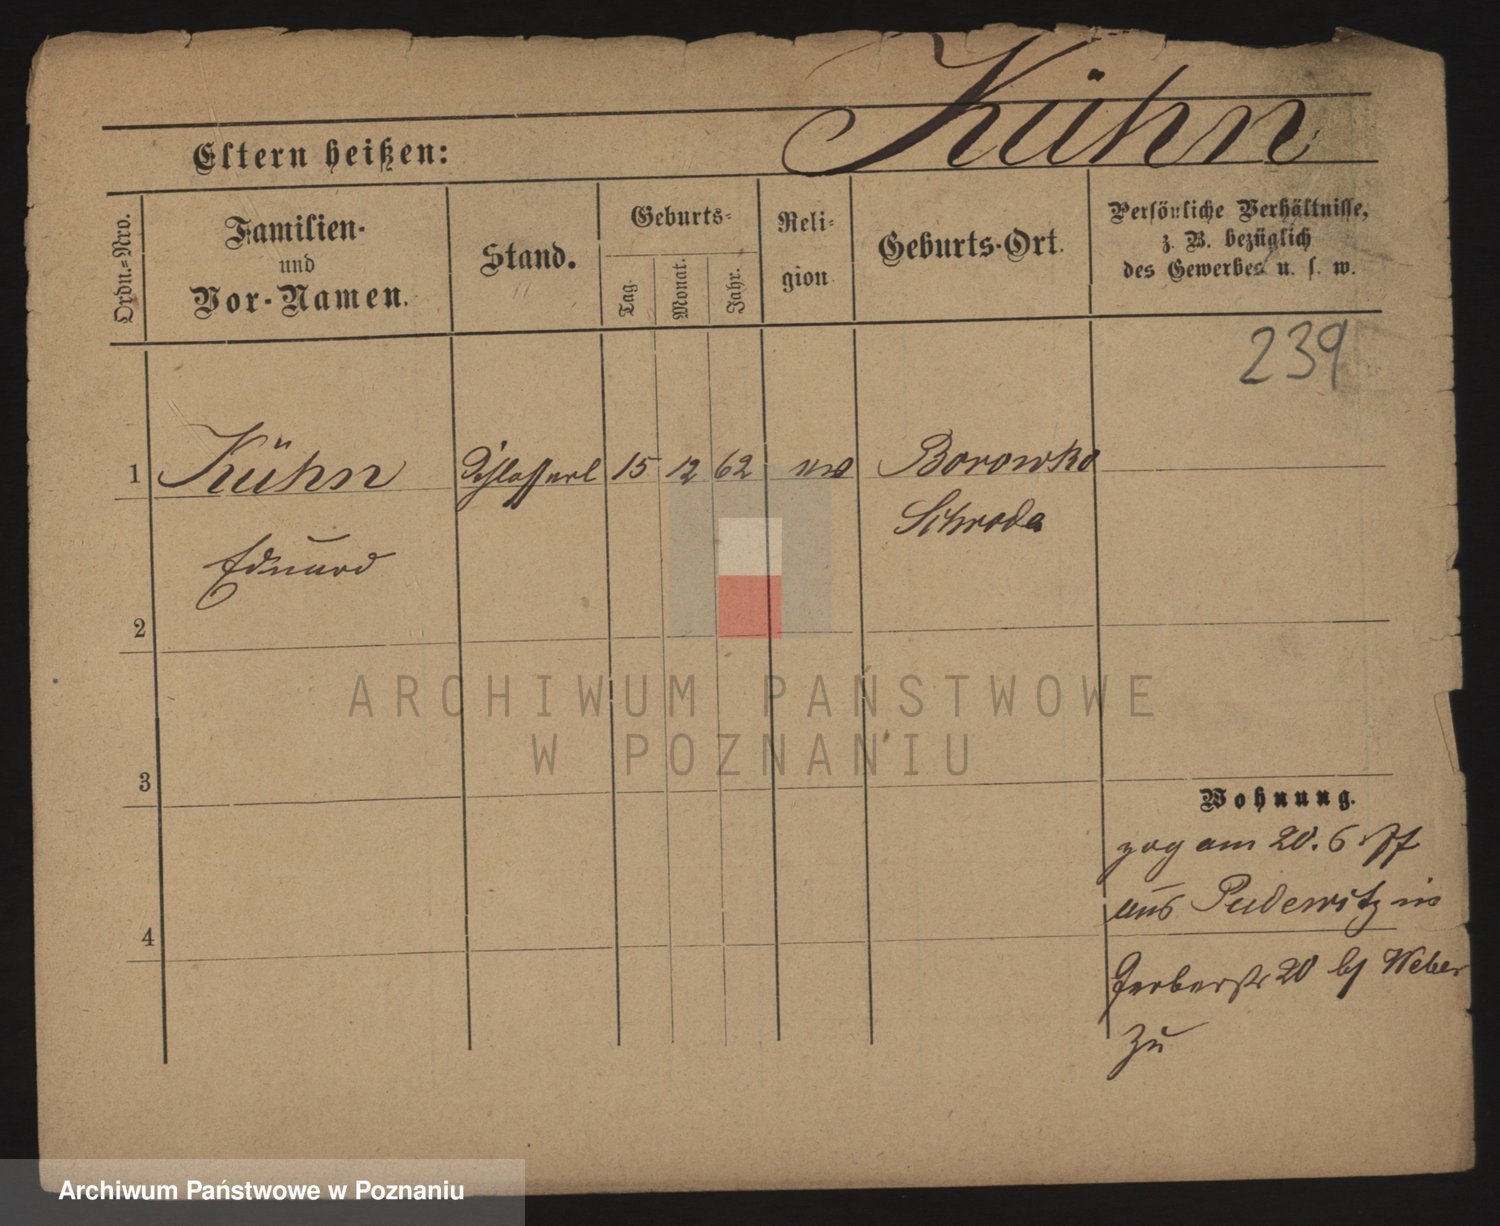 Kühn
Eltern heißen:
Ordn.-Nro.
Familien-
und
Vor-Namen.
Stand.
Geburts-
Tag.
Monat.
Jahr.
Reli-
gion
Geburts-Ort.
Persönliche Verhältnisse,
z. B. bezüglich
des Gewerbes u. s. w.
239
1 Kühn Schlosserl 15 12 62 ev Borowko
Schroda
Eduard
2
ARCHIWUM PAŃSTWOWE
W POZNANIU
3
Wohnung.
zog am 20. 6
aus Pudewitz in
4
Gerberstr 20 bei Weber
zu
Archiwum Państwowe w Poznaniu